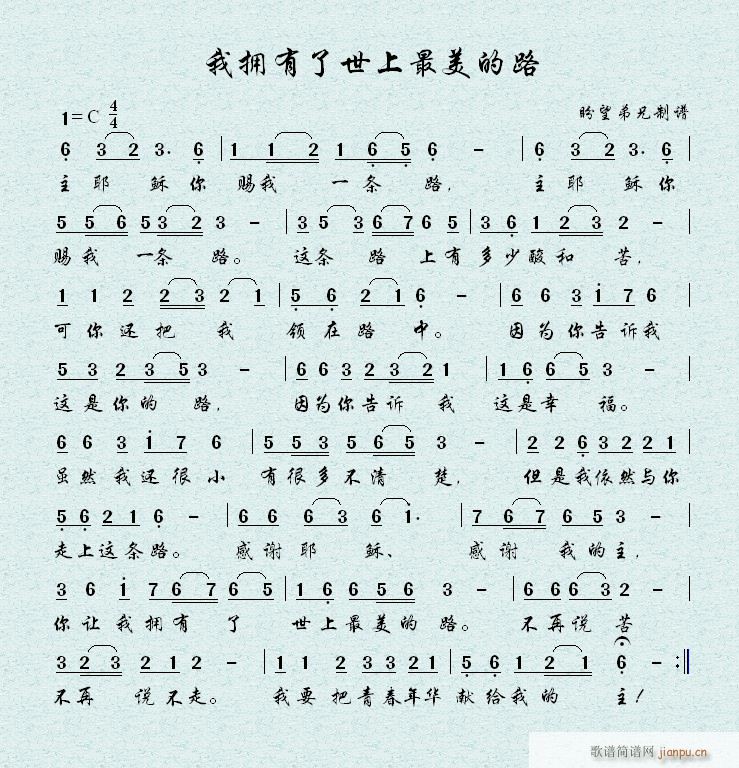 我拥有了世上最美的路
1=C 4/4
盼望弟兄制谱
6 3 2 3· 6 | 1 1 2 1 6 5 6 - | 3 2 3· 6 |
主耶 稣你 赐我 一条 路, 主耶 稣你
5 5 6 5 3 2 3 - | 3 5 3 6 7 6 5 | 3 6 1 2 3 - |
赐我 一条 路。 这条 路 上有多少酸和 苦,
1 1 2 2 3 2 1 | 5 6 2 1 6 - | 6 6 3 1 7 6 |
可你还把 我 领在路 中。 因为你告诉我
5 3 2 3 5 3 - | 6 6 3 2 3 2 1 | 1 6 6 5 3 - |
这是你的 路, 因为你告诉 我 这是幸 福。
6 6 3 1 7 6 | 5 5 3 5 6 5 3 - | 2 2 6 3 2 2 1 |
虽然我还很小 有很多不清 楚, 但是我依然与你
5 6 2 1 6 - | 6 6 6 3 6 1· | 7 6 7 6 5 3 - |
走上这条路。 感谢耶 稣、 感谢 我的主,
3 6 1 7 6 7 6 5 | 1 6 6 5 6 3 - | 6 6 6 3 2 - |
你让我拥有 了 世上最美的路。 不再说 苦
3 2 3 2 1 2 - | 1 1 2 3 3 2 1 | 5 6 1 2 1 6 - :||
不再 说不走。 我要把青春年华 献给我的 主!
歌谱简谱网
jianpu.cn